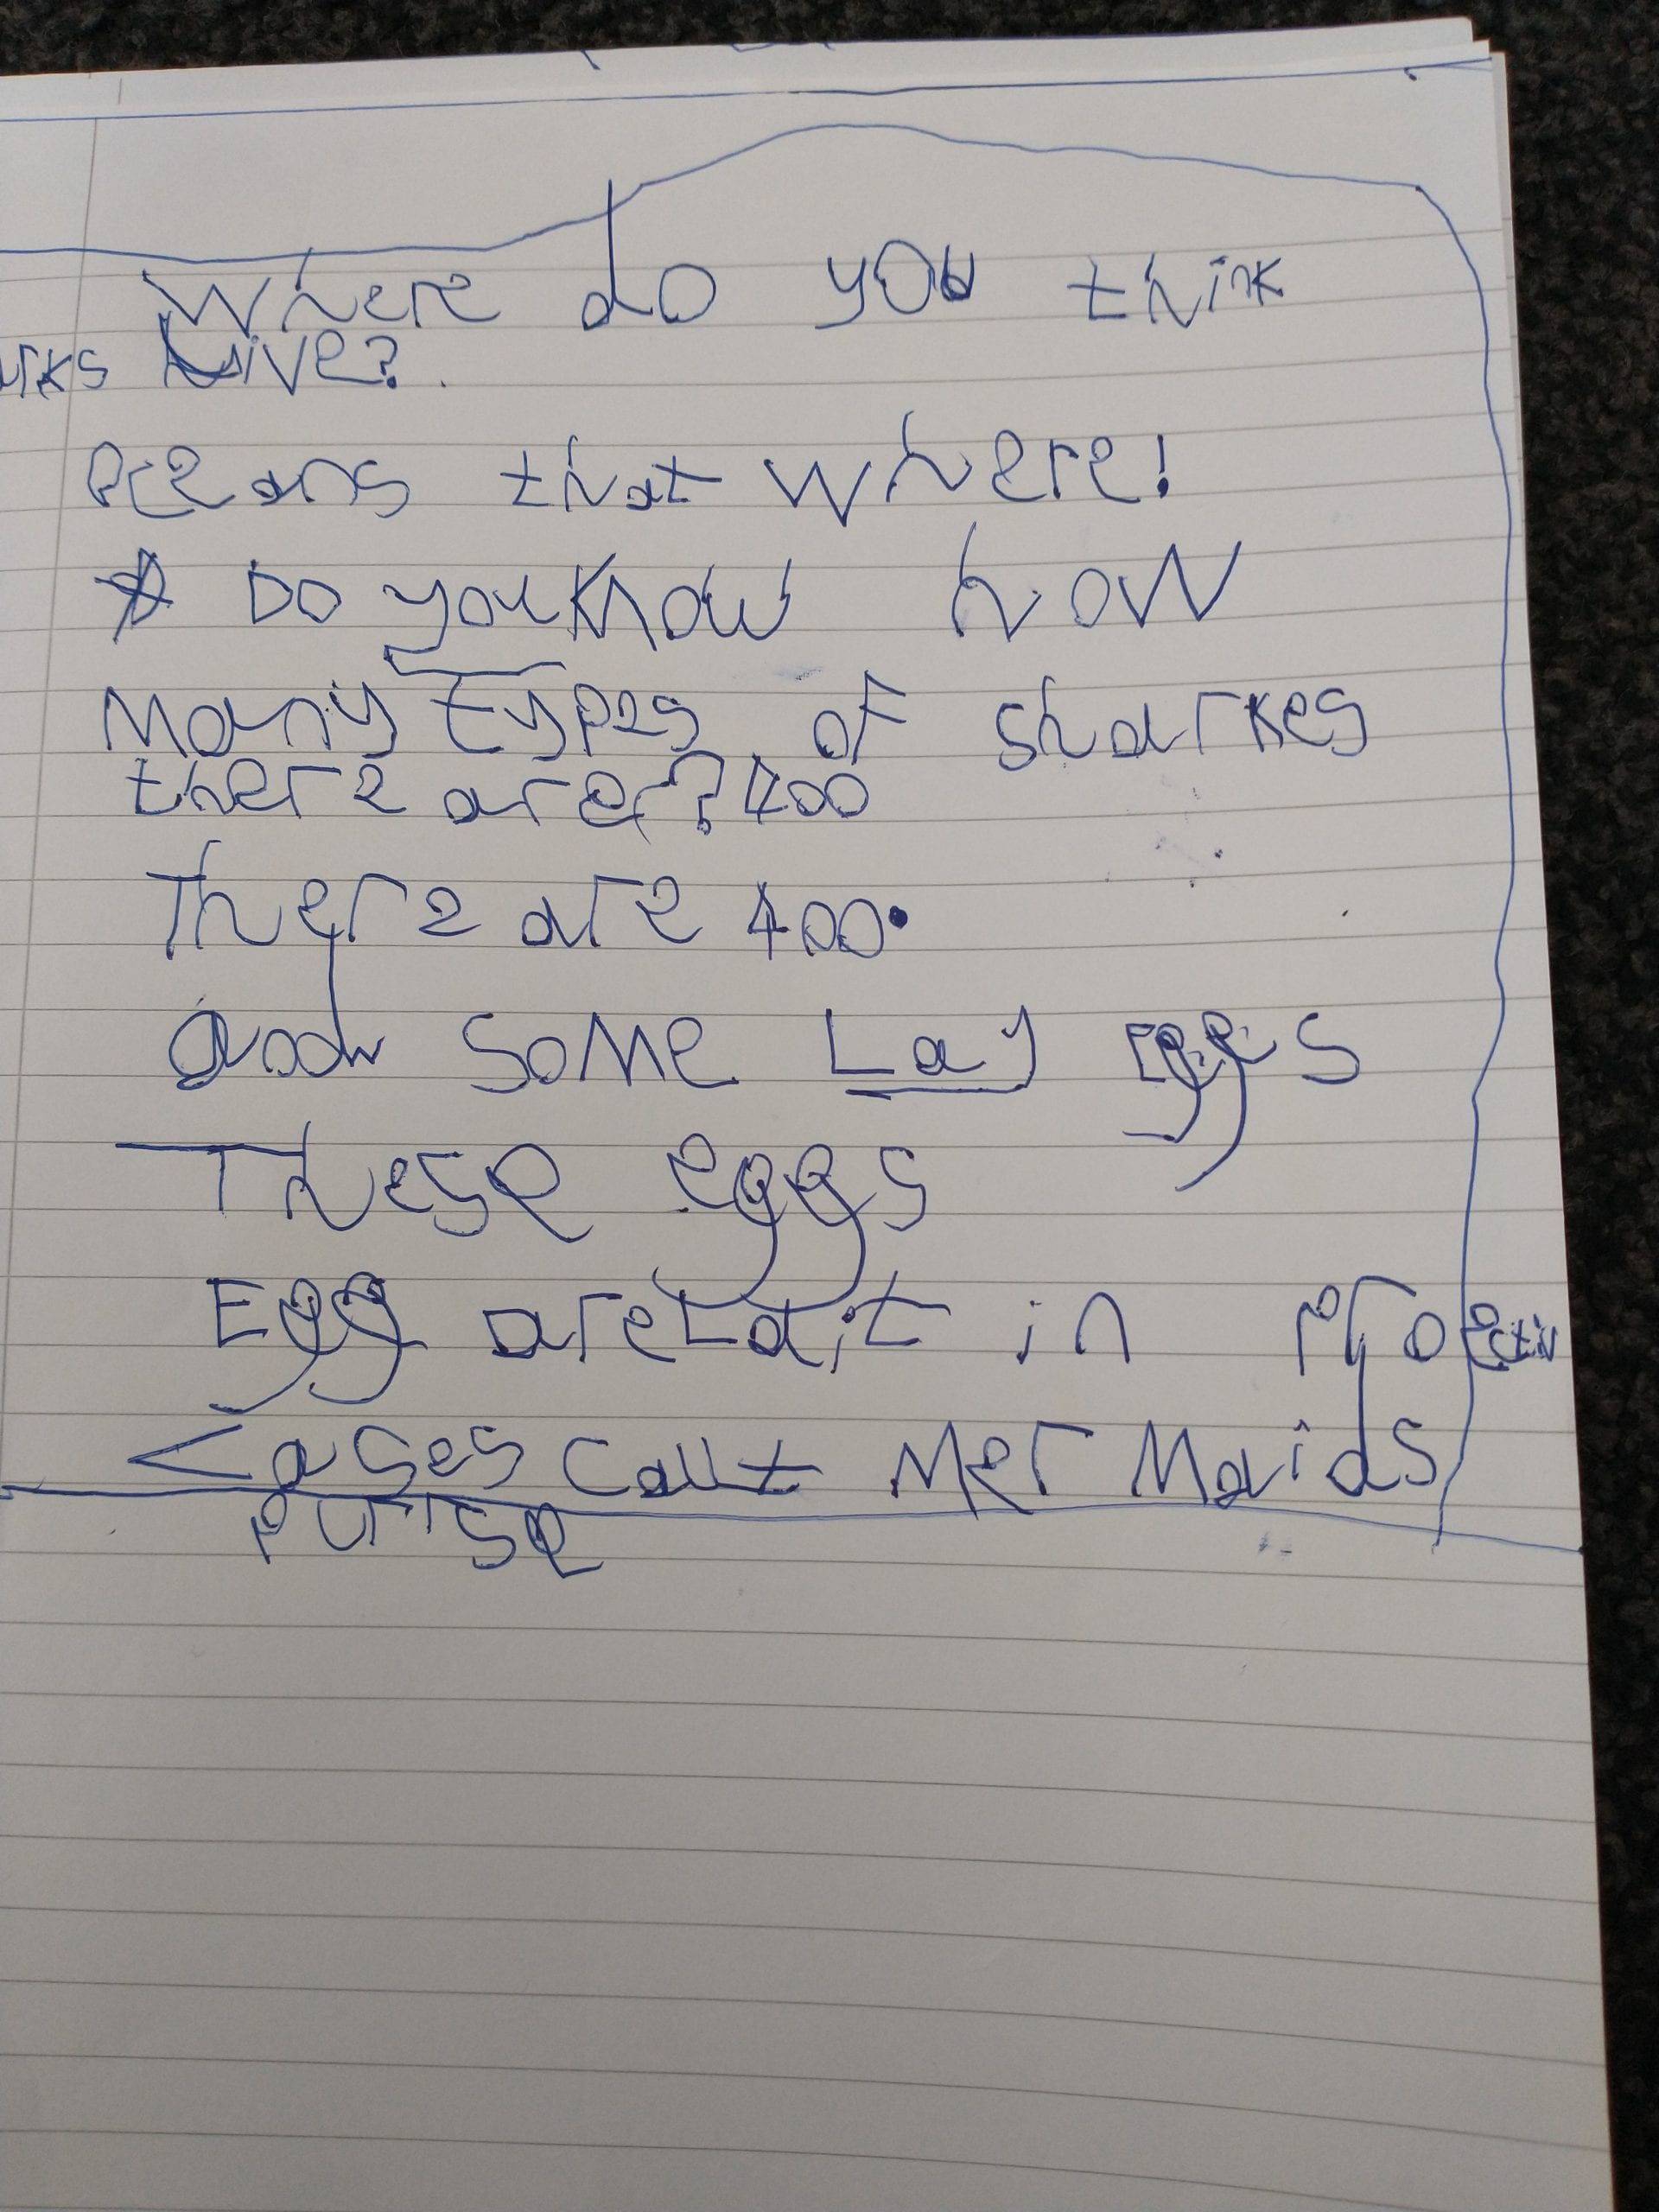 Where do you think
arks Live?
Oceans that where!
Do you know how
Many types of sharkes
there are? 400
There are 400.
and some Lay eggs
These eggs
Egg are Lait in
Cases callt Mer Maids
Purse